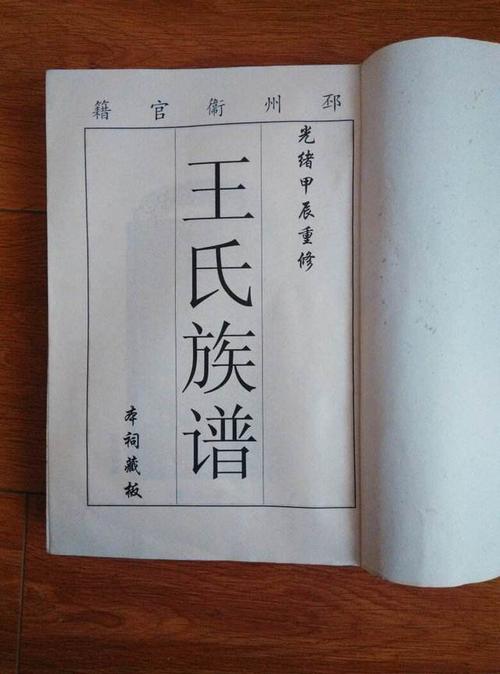 邳州衞官籍
光緒甲辰重修
王氏族谱
本祠藏板